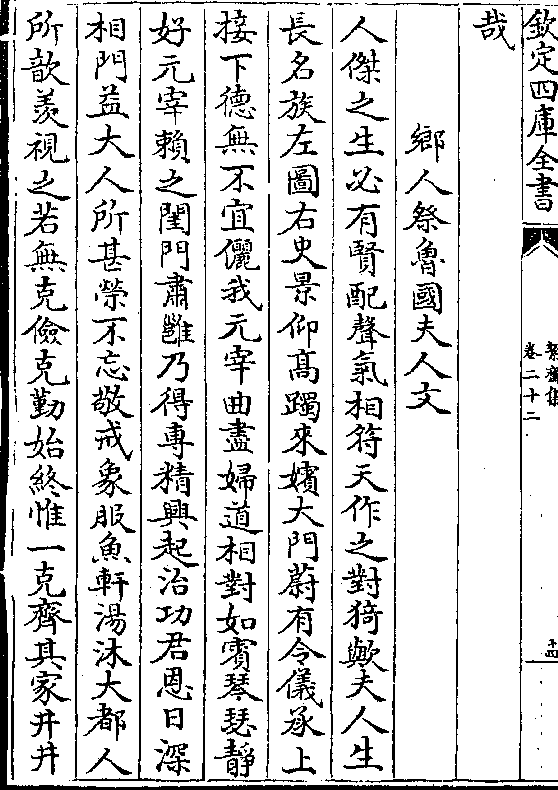 欽定四庫全書
絜齋集
卷二十二
十四
哉
鄉人祭魯國夫人文
人傑之生必有賢配聲氣相符天作之對猗歟夫人生
長名族左圖右史景仰高躅來嬪大門蔚有令儀承上
接下德無不宜儷我元宰曲盡婦道相對如賓琴瑟靜
好元宰賴之閨門肅雝乃得專精興起治功君恩日深
相門益大人所甚榮不忘敬戒象服魚軒湯沐大都人
所歆羨視之若無克儉克勤始終惟一克齊其家井井